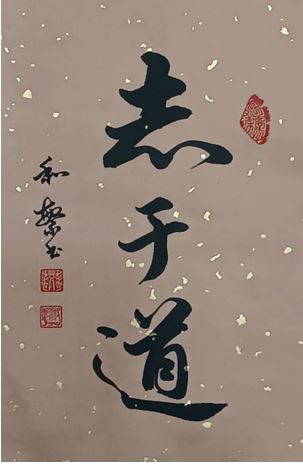 志于道
和繁书